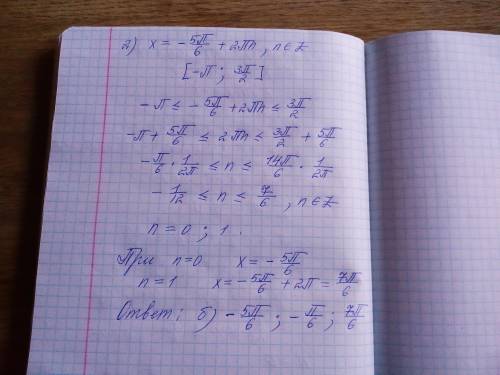 2) x = - 5π/6 + 2πn, n ∈ Z
[-π ; 3π/2]
-π ≤ - 5π/6 + 2πn ≤ 3π/2
-π + 5π/6 ≤ 2πn ≤ 3π/2 + 5π/6
- π/6 · 1/2π ≤ n ≤ 14π/6 · 1/2π
- 1/12 ≤ n ≤ 7/6 , n ∈ Z
n = 0 ; 1 .
При n=0 x = - 5π/6
n = 1 x = - 5π/6 + 2π = 7π/6
Ответ: б) - 5π/6 ; - π/6 ; 7π/6